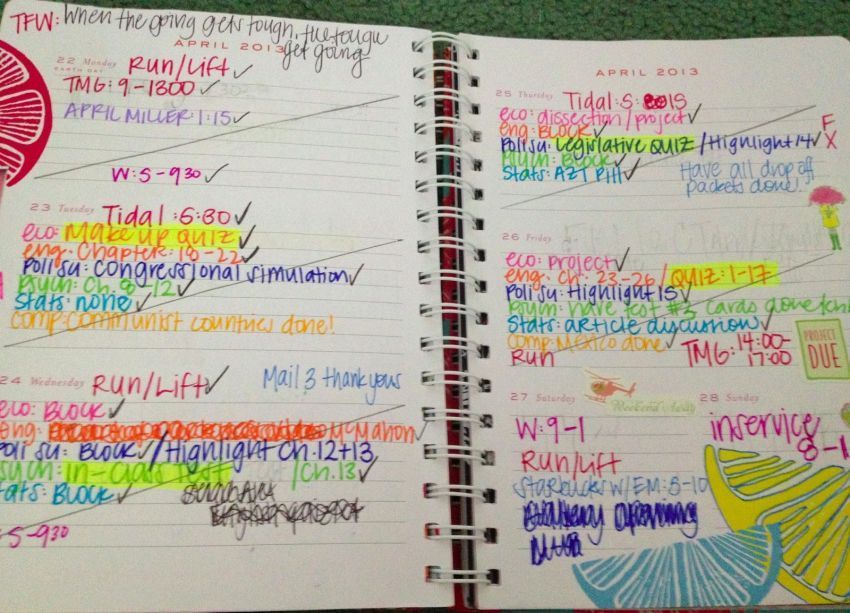 TFW: When the going gets tough, the tough
get going
APRIL 2013
22 Monday Run/Lift ✓
EARTH DAY
TMG: 9-1300 ✓
APRIL MILLER: 1:15 ✓
W: 5-930 ✓
23 Tuesday Tidal: 5:30 ✓
eco: Make up QUIZ ✓
eng: Chapter: 18-22 ✓
Poli Sci: Congressional simulation ✓
Psych: Ch. 8-12 ✓
Stats: none ✓
comp: communist countries done!
24 Wednesday Run/Lift ✓ Mail 3 thank yous
eco: BLOCK ✓
eng: McMahon ✓
Poli Sci: BLOCK ✓/Highlight Ch. 12+13
Psych: in-class test /Ch. 13 ✓
Stats: BLOCK ✓
5-930
APRIL 2013
25 Thursday Tidal: 5: 15
eco: dissection/project ✓
eng: BLOCK ✓
Poli Sci: Legislative QUIZ ✓/Highlight 14 ✓
F
X
Psych: Block ✓
Stats: AZT Pill ✓
Have all drop off
packets done!
26 Friday
eco: Project ✓
eng: Ch. 23-26/QUIZ: 1-17
Poli Sci: Highlight 15 ✓
Psych: have test #3 cards done
Stats: article discussion ✓
comp: Mexico done ✓
Run TMG: 14:00-
17:00
PROJECT
DUE
27 Saturday
Weekend Away
W: 9-1
Run/Lift
Starbucks W/EM: 8-10
28 Sunday
inservice
8-1